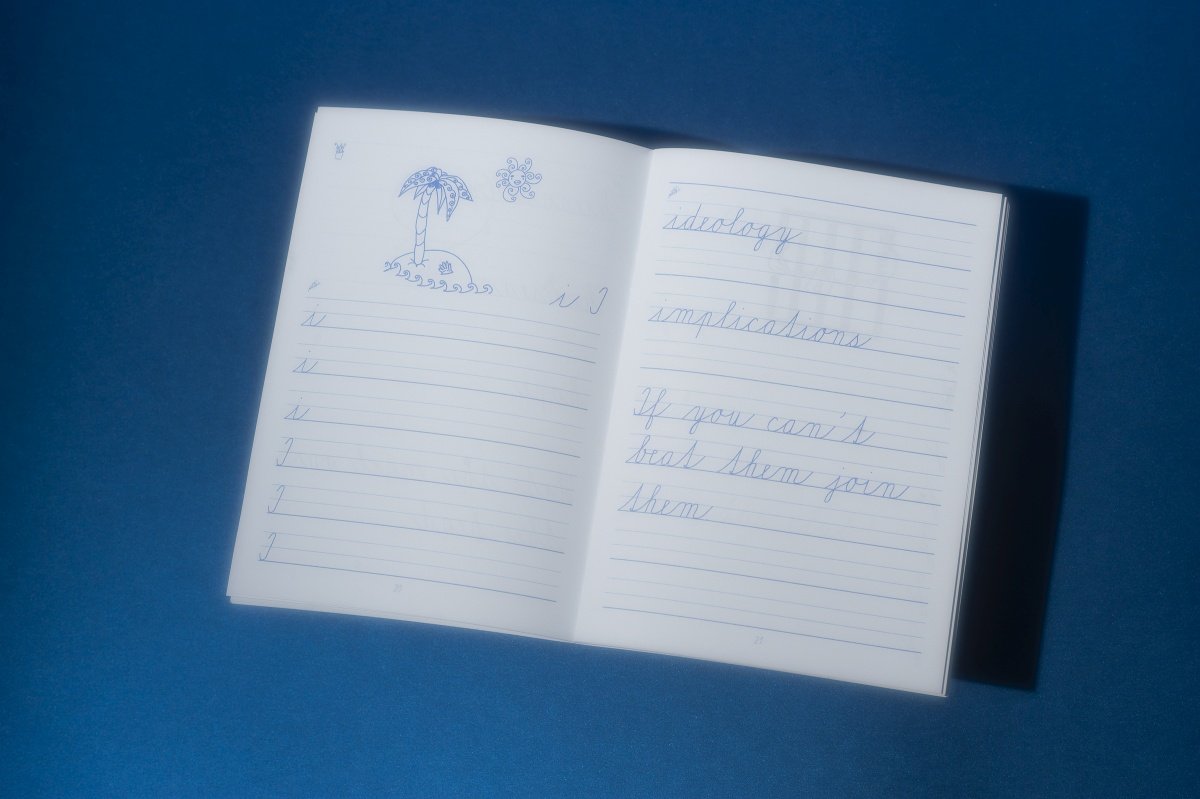 i I
i
i
i
I
I
I
ideology
implications
If you can't
beat them join
them